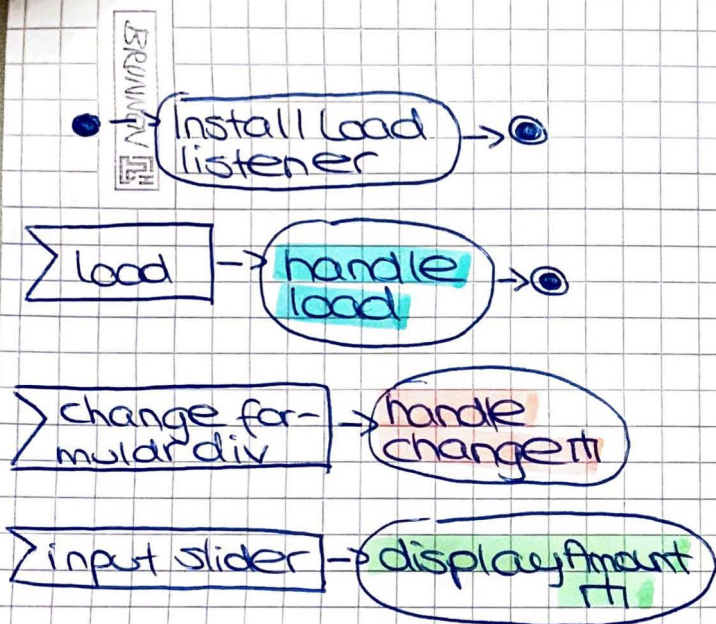 BRUNNEN
Install Load
listener
load
handle
load
change for-
mular div
handle
change
input slider
displayAmount